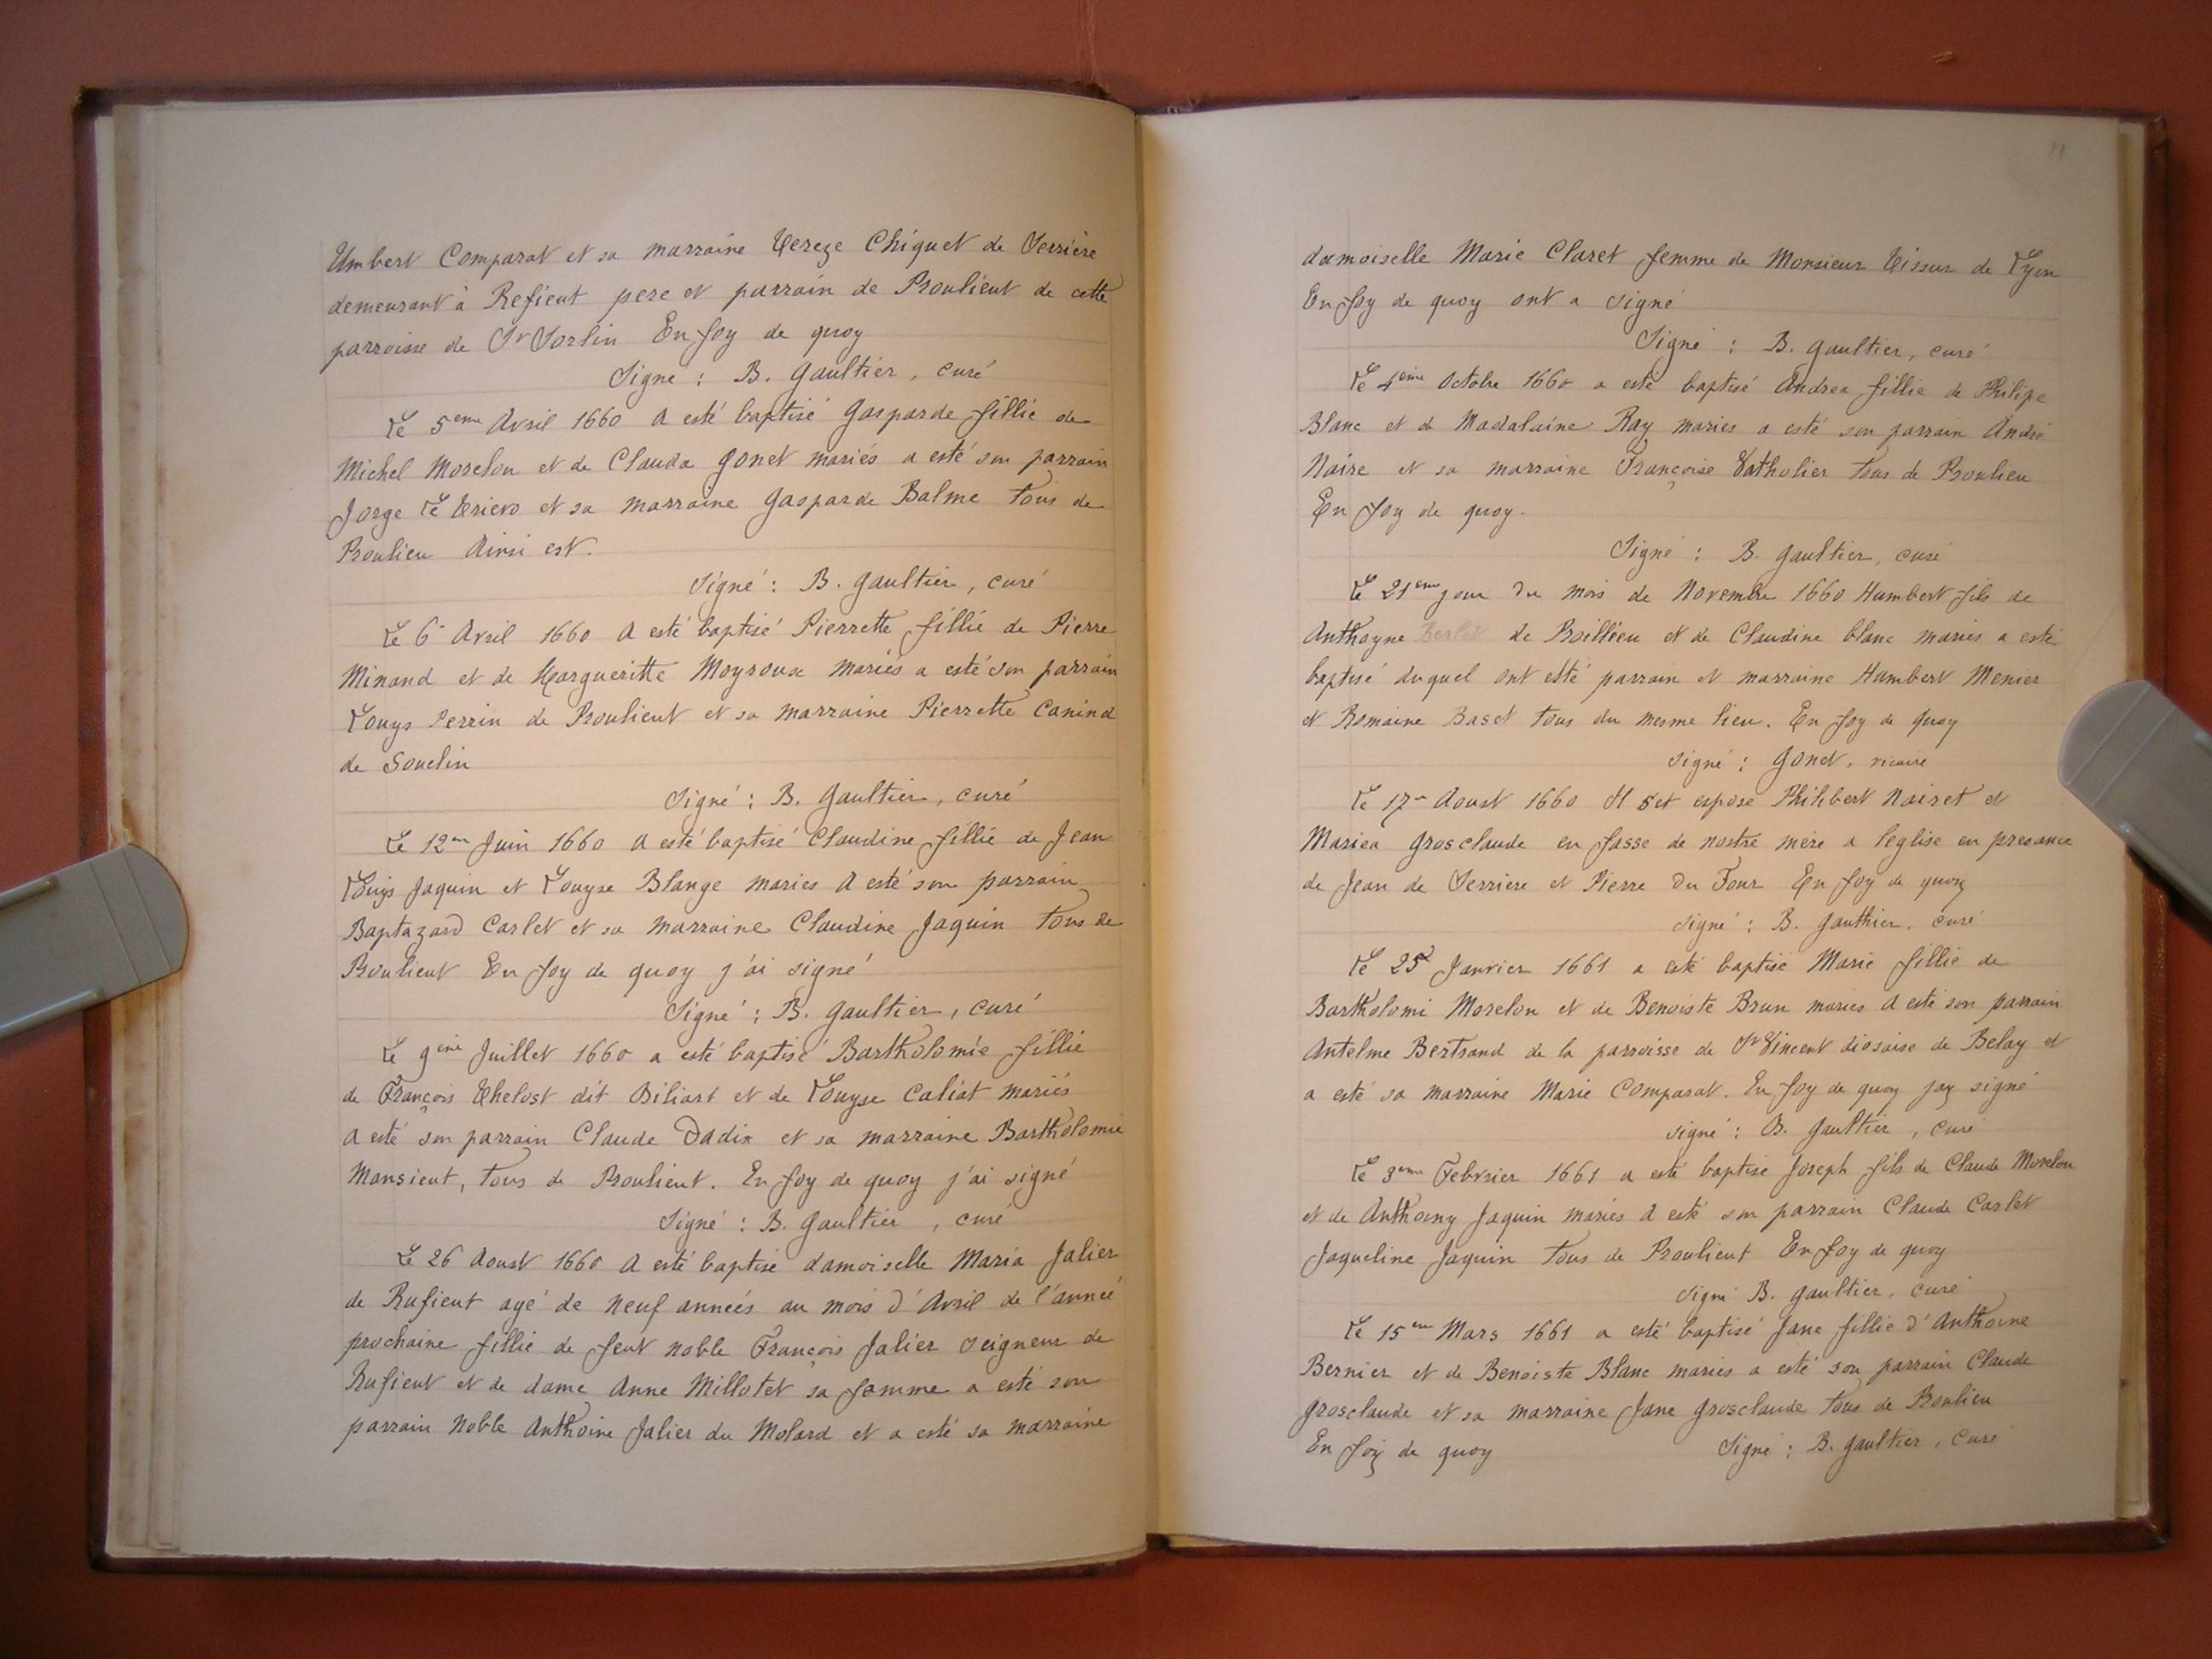 Umbert Comparat et sa marraine Tereze Chiquet de Serrière
demeurant à Refieut pere et parrain de Proulieut de cette
parroisse de St Sorlin En foy de quoy
Signé : B. Gaultier, curé
Le 5eme Avril 1660 a esté baptisé Gasparde fillie de
Michel Morelon et de Clauda Gonet mariés a esté son parrain
Jorge Le Trievo et sa marraine Gasparde Balme tous de
Proulieu Ainsi est.
Signé : B. Gaultier, curé
Le 6e Avril 1660 a esté baptisé Pierrette fillie de Pierre
Minand et de Margueritte Moyroux mariés a esté son parrain
Louys Perrin de Proulieut et sa marraine Pierrette Canind
de Souclin
Signé : B. Gaultier, curé
Le 12em Juin 1660 a esté baptisé Claudine fillie de Jean
Louys Jaquin et Louyse Blange maries a esté son parrain
Baptazard Carlet et sa marraine Claudine Jaquin tous de
Proulieut En foy de quoy j'ai signé
Signé : B. Gaultier, curé
Le 9eme Juillet 1660 a esté baptisé Bartholomie fillie
de François Thelost dit Biliart et de Louyse Caliat mariés
a esté son parrain Claude Dadix et sa marraine Bartholomie
Mansieut, tous de Proulieut. En foy de quoy j'ai signé
Signé : B. Gaultier, curé
Le 26 Aoust 1660 a esté baptisé damoiselle Maria Jalier
de Rufieut agé de neuf anneés au mois d'Avril de l'anneé
prochaine fillie de feut noble François Jalier seigneur de
Rufieut et de dame Anne Millotet sa femme a esté son
parrain noble Anthoine Jalier du Molard et a esté sa marraine
21
damoiselle Marie Claret femme de Monsieur Tissur de Lyon
En foy de quoy ont a signé
Signé : B. Gaultier, curé
Le 4eme Octobre 1660 a esté baptisé Andrea fillie de Philipe
Blanc et d Madalaine Ray maries a esté son parrain André
Naire et sa marraine Françoise Vatholier tous de Proulieu
En foy de quoy.
Signé : B. Gaultier, curé
Le 21eme jour du mois de Novembre 1660 Humbert fils de
Anthoyne Berlet de Proillieu et de Claudine blanc mariés a esté
baptisé duquel ont etté parrain et marraine Humbert Menier
et Romaine Baset tous du mesme lieu. En foy de quoy
signé : Gonet, vicaire
Le 17e Aoust 1660 Il set espose Philibert Nairet et
Mariea Grosclaude en fasse de nostre mère a leglise en presance
de Jean de Serriere et Pierre Du Four En foy de quoy
signé : B. Gauthier, curé
Le 25 Janvier 1661 a esté baptisé Marie fillie de
Bartholomi Morelon et de Benoiste Brun maries a esté son parrain
Antelme Bertrand de la parroisse de St Vincent diosaise de Belay et
a esté sa marraine Marie Comparat. En foy de quoy jay signé
signé : B. Gaultier, curé
Le 3eme Febvrier 1661 a esté baptisé Joseph fils de Claude Morelon
et de Anthoiny Jaquin mariés a esté son parrain Claude Carlet
Jaqueline Jaquin tous de Proulieut En foy de quoy
Signé B. Gaultier, curé
Le 15em Mars 1661 a esté baptisé Jane fillie d'Anthoine
Bernier et de Benoiste Blanc maries a esté son parrain Claude
Grosclaude et sa marraine Jane Grosclaude tous de Proulieu
En foy de quoy Signé : B. Gaultier, curé